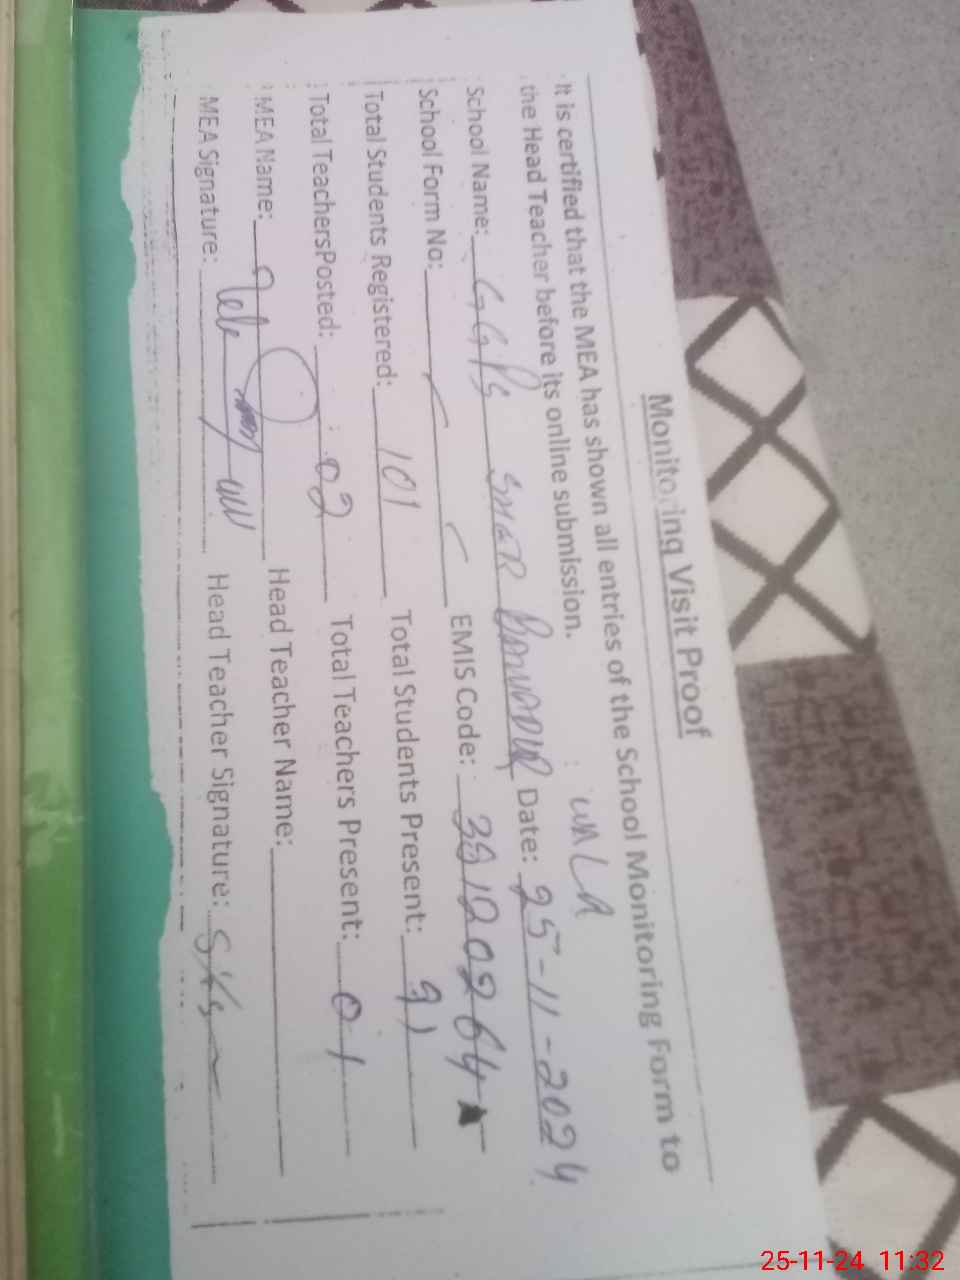 Monitoring Visit Proof
It is certified that the MEA has shown all entries of the School Monitoring Form to
the Head Teacher before its online submission.
School Name: GGPS Date: 25-11-2024
School Form No: EMIS Code: 39120264
Total Students Registered: 101 Total Students Present: 91
Total TeachersPosted: 02 Total Teachers Present: 01
MEA Name: Head Teacher Name:
MEA Signature: Head Teacher Signature:
25-11-24 11:32